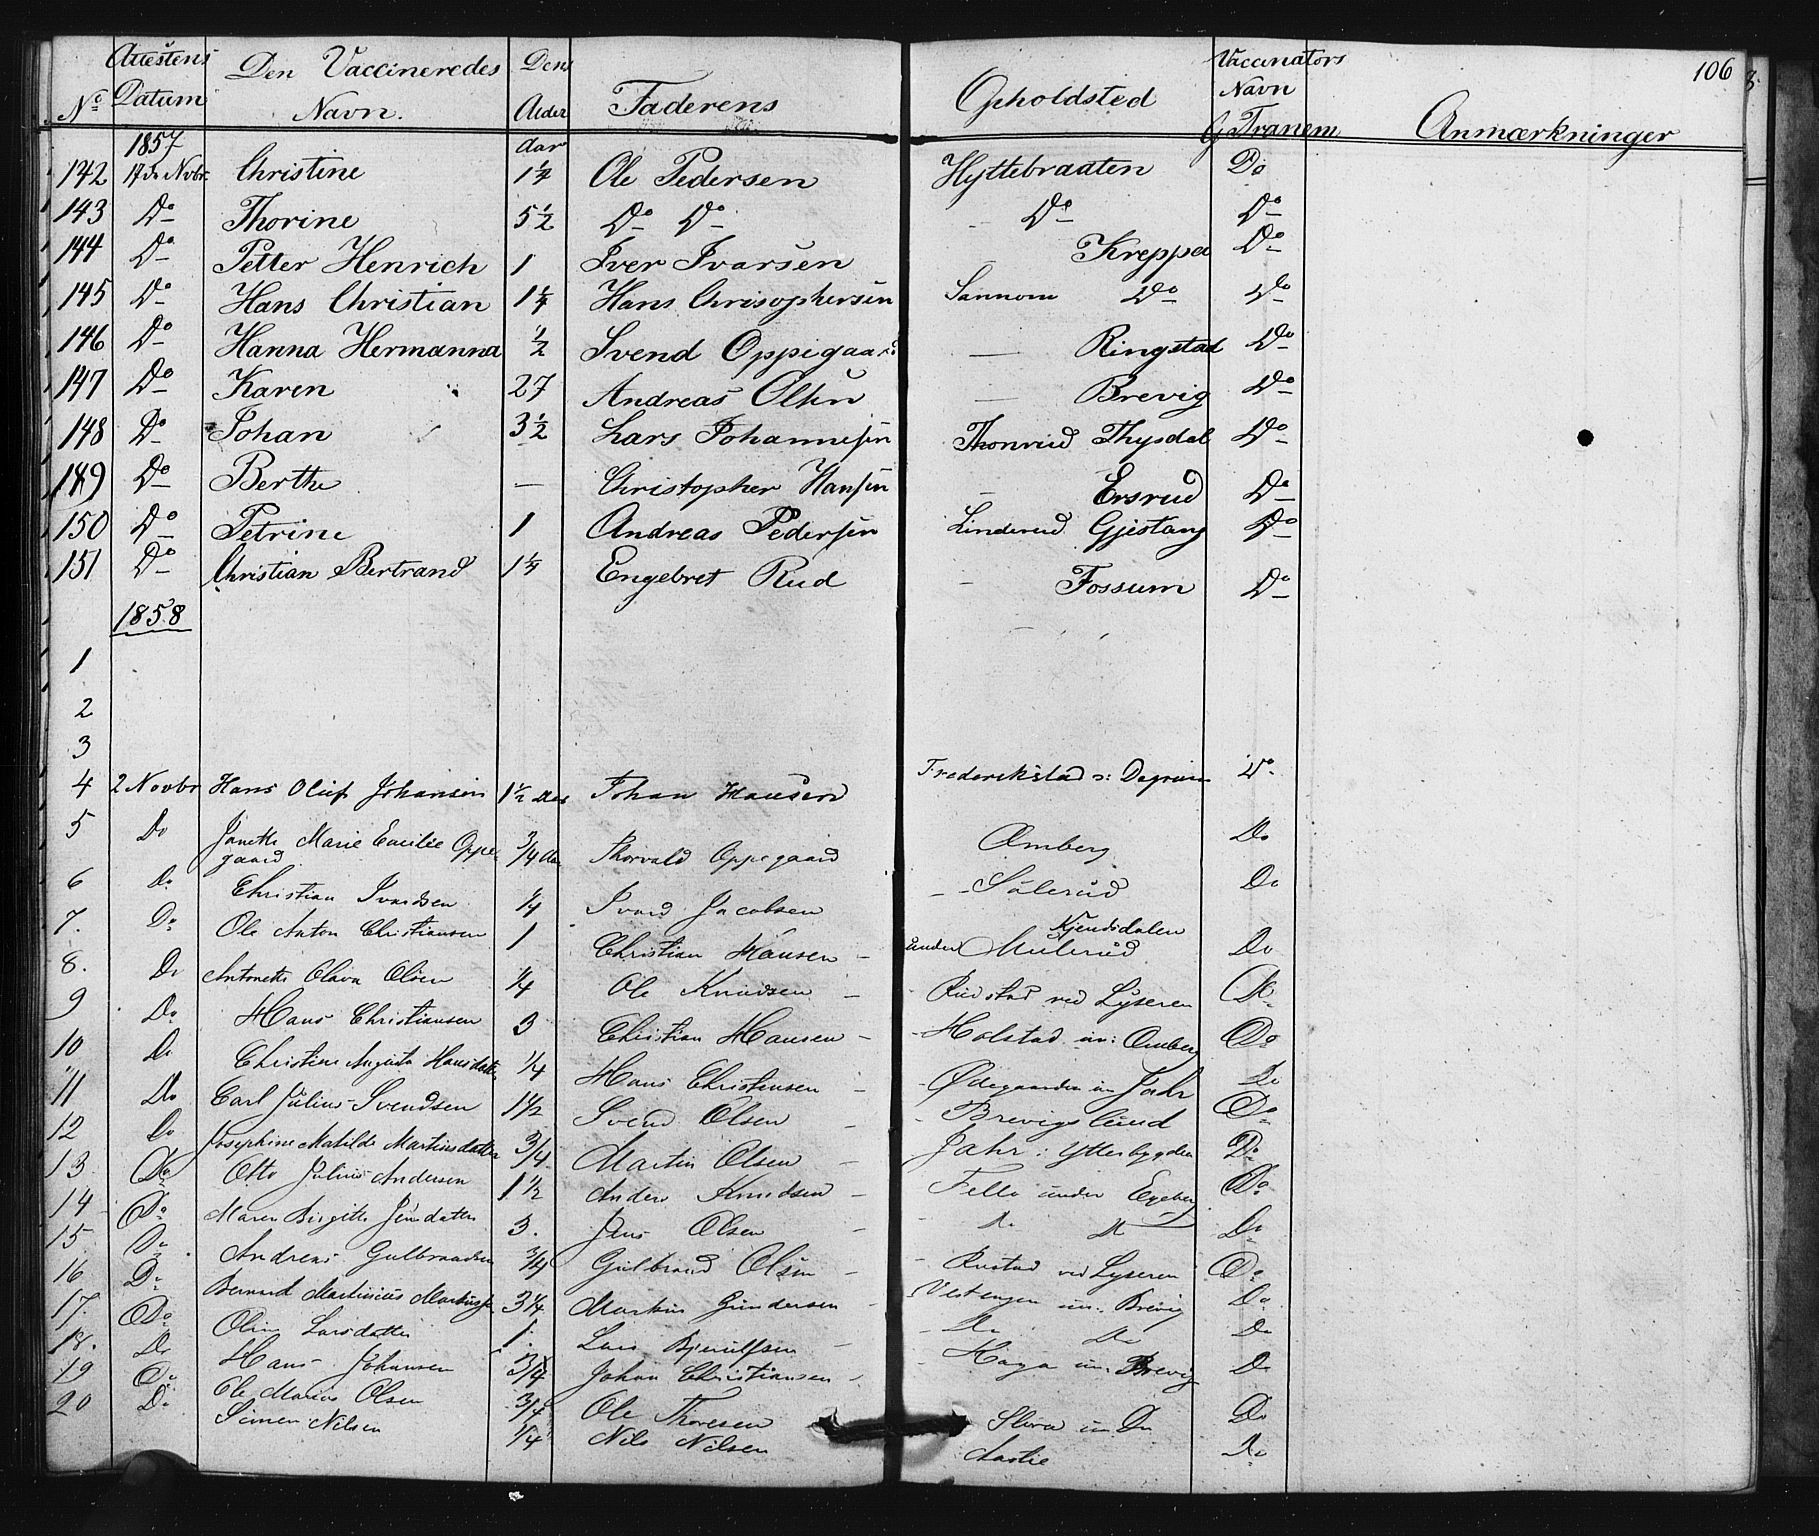 106
No Attestens Datum Den Vaccineredes Navn. Dens Alder Faderens Opholdsted Vaccinators Navn Anmærkninger
1857 Aar G Tranem
142 17de Novbr. Christine 1 1/4 Ole Pedersen Hyttebraaten Do
143 Do Thorine 5 1/2 Do Do - Do Do
144 Do Petter Henrich 1 Iver Ivarsen Kreppa Do
145 Do Hans Christian 1 1/4 Hans Chrisophersen Sannom Do Do
146 Do Hanna Hermanna 1/2 Svend Oppigaard — Ringstad Do
147 Do Karen 27 Andreas Olsen — Brevig Do
148 Do Johan 3 1/2 Lars Johannesen Thonrud Thysdal Do
149 Do Berthe — Christopher Hansen - Ersrud Do
150 Do Petrine 1 Andreas Pedersen Linderud Gjestang Do
151 Do Christian Bertrand 1 1/4 Engebret Rud - Fossum Do
1858
1
2
3
4 2 Novbr Hans Oluf Johansen 1 1/2 Johan Hansen Frederikstad Do
5 Do Marie Emilie Oppe- 3/4 Thorvald Oppegaard Omberg Do
gaard
6 Do Christian Ivardsen 1/4 Ivard Jacobsen - Sölerud Do
7. Do Ole Anton Christiansen 1 Christian Hansen - under Kjendsdalen Mulerud Do
8. Do Antonette Olava Olsen 1/4 Ole Knudsen - Rudstad ved Lyseren Do
9 Do Hans Christiansen 3 Christian Hansen - Holstad un: Omberg Do
10 Do Christine Augusta Hansdatter 1/4 Hans Christensen - Ødegaarden un Jahr Do
11 Do Carl Julius Svendsen 1 1/2 Svend Olsen - Brevigslund Do
12 Do Josephine Matilde Martinsdatter 3/4 Martin Olsen - Jahr i Ytterbygden Do
13 Do Otto Julius Andersen 1 1/2 Anders Knudsen - Fello under Egeberg Do
14 Do Maren Birgitte Jensdatter 3. Jens Olsen Do Do Do
15. Do Andreas Gulbrandsen 3/4 Gulbrand Olsen - Rustad ved Lyseren Do
16 Do Bernard Martinius 3 1/4 Martin Gundersen - Vestengen un: Brevig Do
17. Do Oline Larsdatter 1. Lars - Do Do Do
18. Do Hans Johansen 3/4 Johan Christiansen - Haga un: Brevig Do
19 Do Ole Marius Olsen 3/4 Ole Thoresen un Do Do
20 Do Simen Nilsen 1/4 Nils Nilsen Do